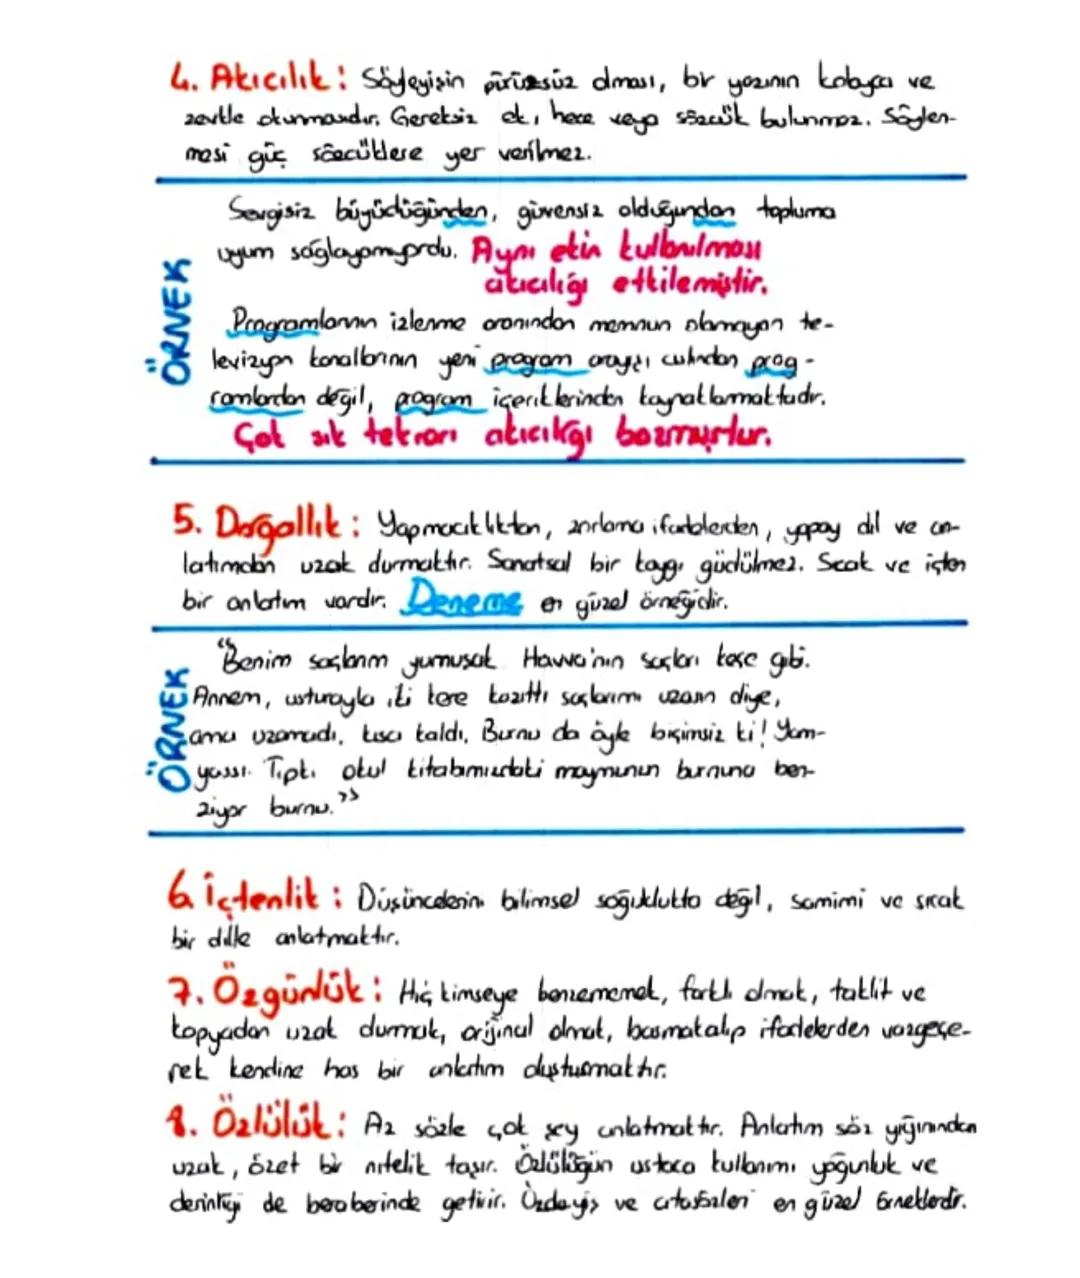 4. Akıcılık: Söyleyişin pürüzsüz olması, bir yazının kolayca ve
zevkle okunmasıdır. Gereksiz ek, hece veya sözcük bulunmaz. Söylen-
mesi güç sözcüklere yer verilmez.
Sevgisiz büyüdüğünden, güvensiz olduğundan topluma
uyum sağlayamıyordu. Aynı ekin kullanılması
akıcılığı etkilemiştir.
ÖRNEK
Programlarının izlenme oranından memnun olamayan te-
levizyon kanallarının yeni program arayışı aslından prog-
ramlardan değil, program içeriklerinden kaynaklanmaktadır.
Çok sık tekrarı akıcılığı bozmuştur.
5. Doğallık: Yapmacıklıktan, zorlama ifadelerden, yapay dil ve an-
latımdan uzak durmaktır. Sanatsal bir kaygı güdülmez. Sıcak ve içten
bir anlatım vardır. Deneme en güzel örneğidir.
"Benim saçlarım yumuşak. Havva'nın saçları keçe gibi.
ÖRNEK
Annem, usturayla iki kere kazıttı saçlarımı uzasın diye,
ama uzamadı, kısa kaldı. Burnu da öyle biçimsiz ki! Yam-
yassı. Tıpkı okul kitabımızdaki maymunun burnuna ben-
ziyor burnu."
6. İçtenlik: Düşüncelerini bilimsel soğuklukta değil, samimi ve sıcak
bir dille anlatmaktır.
7. Özgünlük: Hiç kimseye benzememek, farklı olmak, taklit ve
kopyadan uzak durmak, orijinal olmak, basmakalıp ifadelerden vazgeçe-
rek kendine has bir anlatım oluşturmaktır.
8. Özlülük: Az sözle çok şey anlatmaktır. Anlatım söz yığınından
uzak, özet bir nitelik taşır. Özlülüğün ustaca kullanımı yoğunluk ve
derinliği de beraberinde getirir. Özdeyiş ve atasözleri en güzel örneklerdir.